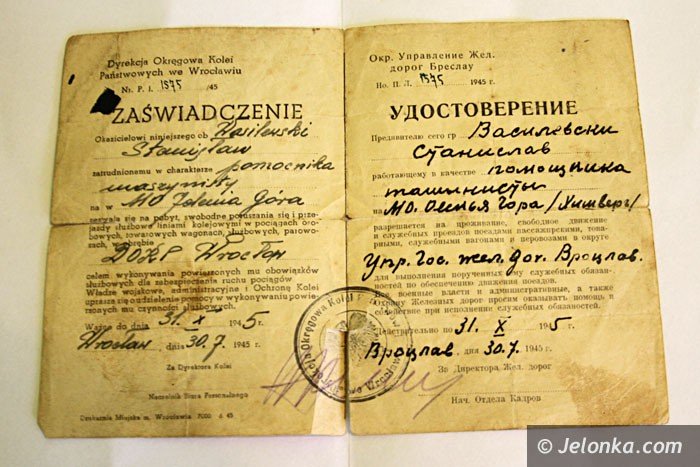 Dyrekcja Okręgowa Kolei
Państwowych we Wrocławiu
Nr. P. I. 1575 /45
ZAŚWIADCZENIE
Okazicielowi niniejszego ob Wasilewski
Stanisław
zatrudnionemu w charakterze pomocnika
maszynisty
na w MO Jelenia Góra
zezwala się na pobyt, swobodne poruszanie się i prze-
jazdy służbowe liniami kolejowymi w pociągach oso-
bowych, towarowych wagonach, służbowych, parowo-
zach, w obrębie
DOKP Wrocław
celem wykonywania powierzonych mu obowiązków
służbowych dla zabezpieczenia ruchu pociągów
Władze wojskowe, administracyjne i Ochronę Kolei
uprasza się o udzielenie pomocy w wykonywaniu powie-
rzonych mu czynności służbowych.
Ważne do dnia 31. X 1945
Wrocław, dnia 30.7. 1945 r.
Za Dyrektora Kolei
Naczelnik Biura Personalnego
Drukarnia Miejska m. Wrocławia 7000 6 45
Окр. Управление Жел.
дорог Бреслау
Но. П. Л. 1575 1945 г.
УДОСТОВЕРЕНИЕ
Предявителю сего гр Василевски
Станислав
работающему в качестве помощника
машинисты
на МО. Оленья Гора /Хиршберг/
разрешается на проживание, свободное движение
и служебных проездов поездами пассажирскими, това-
рными, служебными вагонами и перовозами в округе
Упр. Гос. жел. дог. Вроцлав.
для выполнения порученных ему служебных обязан-
ностей по обеспечению движения поездов.
Все военные власти и административные, а также
Охрану Железных дорог просим оказывать помощь и
содействие при исполнении служебных обязанностей.
Действительно по 31. X 1945
Вроцлав, дня 30.7. 1945 г.
За Директора Жел. дорог
Нач. Отдела Кадров
© Jelonka.com